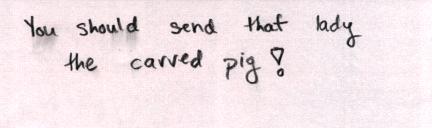 You should send that lady
the carved pig!